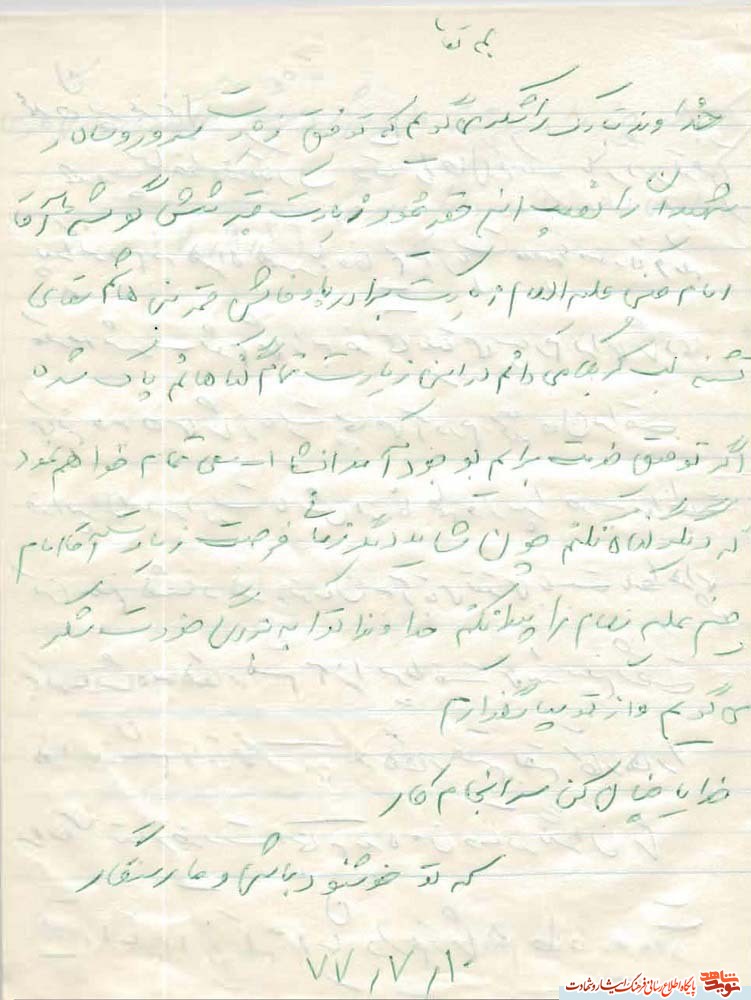 بسمه تعالی
خداوند تبارک را شکر می گویم که توفیق زیارت سرور و سالار
شهیدان را نصیب این حقیر نمود زیارت قبر شش گوشه یا آقا
امام حسین علیه السلام زیارت برادر با وفایش قمر بنی هاشم سقای
تشنه لب کربلا می دانم در این زیارت تمام گناهانم پاک شده
اگر توفیق خدمت برایم بوجود آمد انشاا... سعی تمام خواهم نمود
که دیگر گناه نکنم چون شاید دیگر زمانی فرصت زیارت آقا امام
حسین علیه را پیدا نکنم خداوندا تو را به بزرگی خودت شکر
می گویم و از تو سپاسگذارم
خدایا چنان کن سرانجام کار
که تو خوشنود باشی و ما رستگار
۷۷٫۷٫۱۰
نوید شاهد
پایگاه اطلاع رسانی فرهنگ ایثار و شهادت